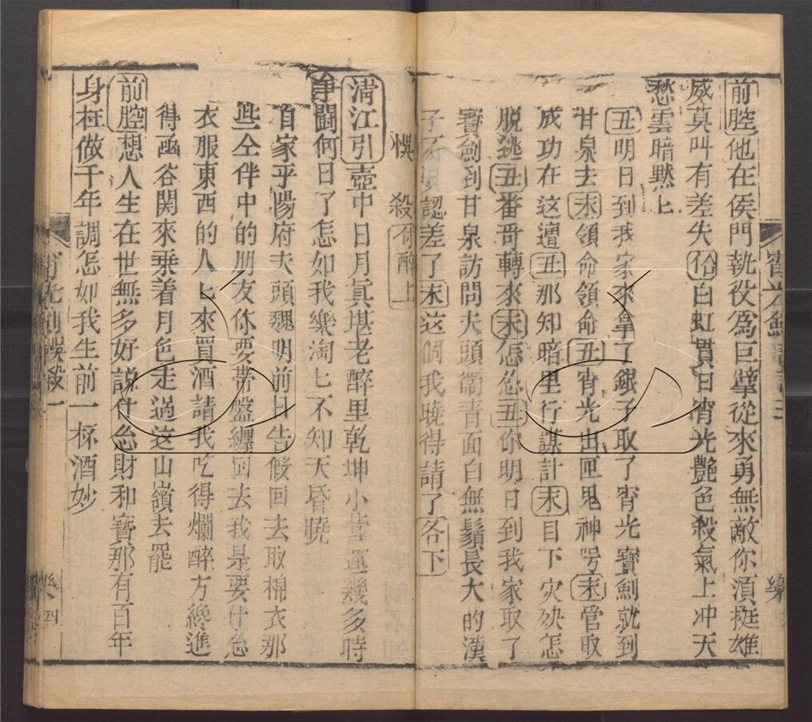 前腔他在侯門執役爲巨擘從來勇無敵你須挺雄
威莫叫有差失佮白虹貫日宵光艷色殺氣上冲天
愁雲暗黙上
丑明日到我家來拿了銀子取了宵光寳劍就到
甘泉去末領命領命丑宵光出匣鬼神号末管取
成功在這遭丑那知暗里行謀計末目下灾殃怎
脱逃丑番哥轉來末怎怂丑你明日到我家取了
寳劍到甘泉訪問夫頭衞青面白無鬚長大的漢
子不認差了末这個我曉得請了各下
悞殺
清江引壺中日月眞堪老醉里乾坤小運幾多時
爭闘何日了怎如我樂淘匕不知天昏曉
自家乎陽府夫頭魏明前日告假回去取棉衣那
些仝伴中的朋友你要帶盤纏回去我是要什怂
衣服東西的人匕來買酒請我吃得爛醉方纔進
得凾谷関來乘着月色走過这山嶺去罷
前腔想人生在世無多好說什怂財和寳那有百年
身枉做千年調怎如我生前一杯酒妙
樂四